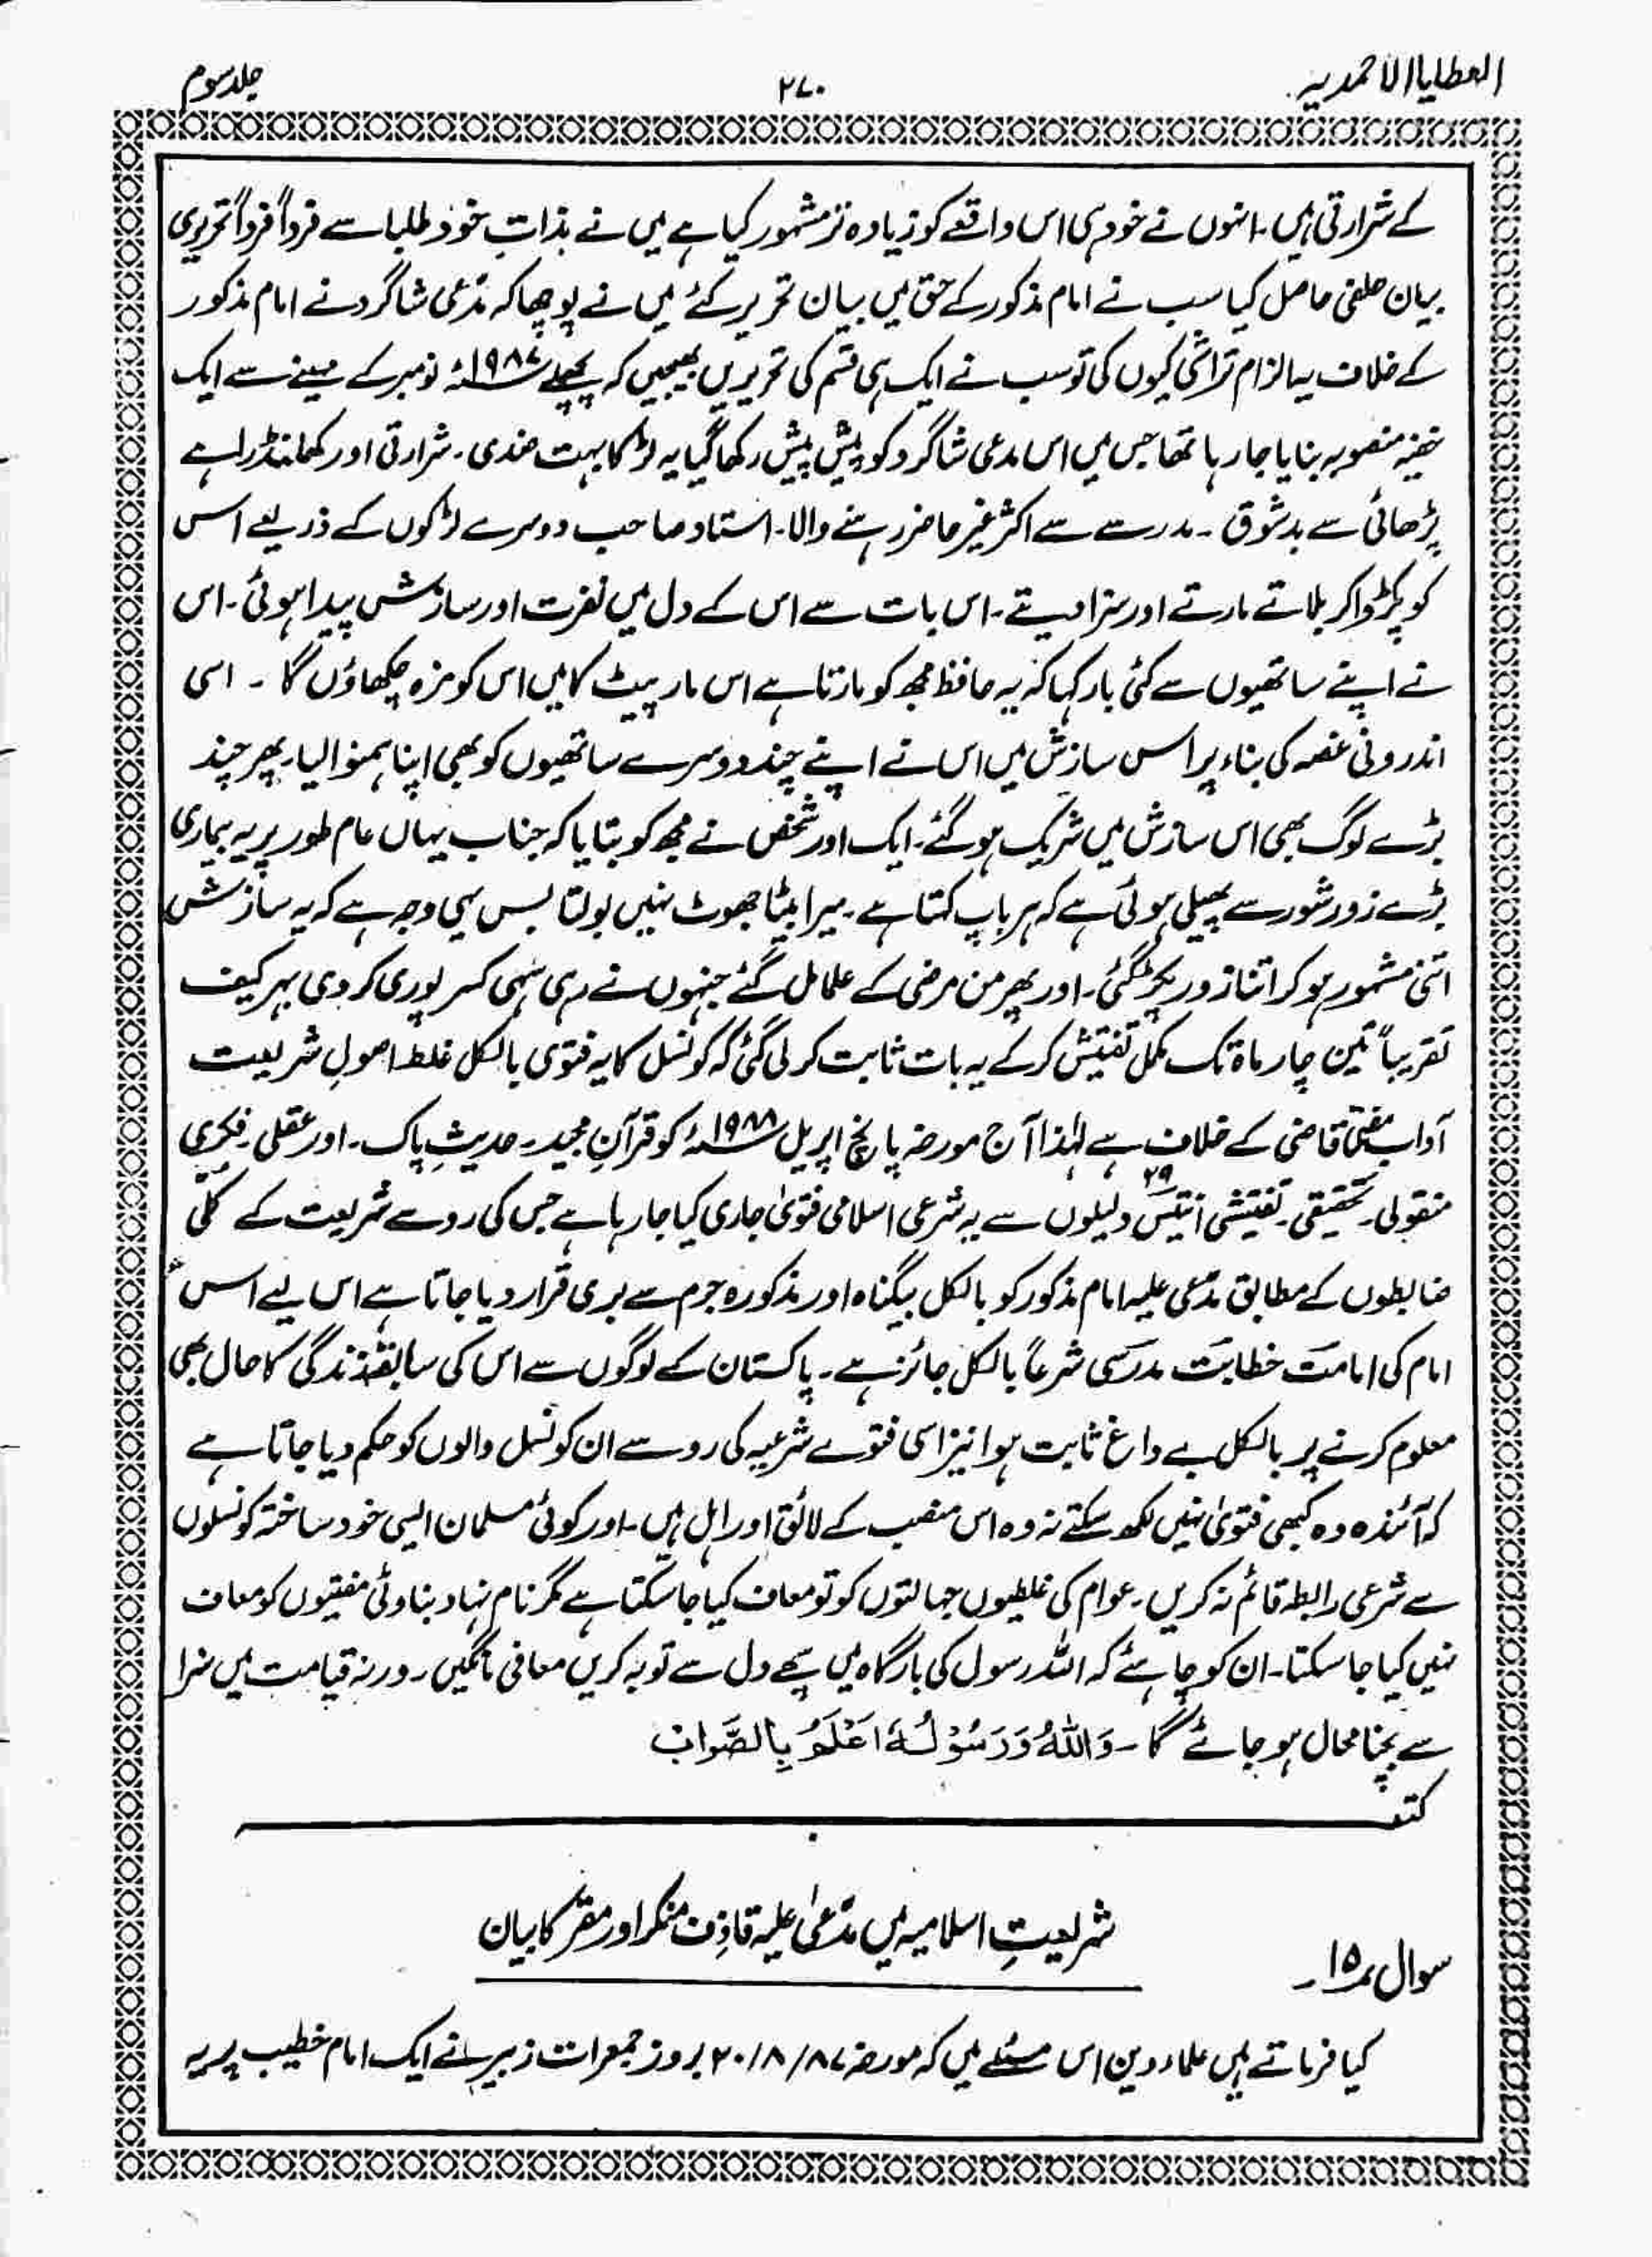 العطایا الاحمدیہ
۲۷۰
جلد سوم
کے شرارتی ہیں۔ انہوں نے خود ہی اس واقعے کو زیادہ تر مشہور کیا ہے میں نے بذاتِ خود طلبا سے فرداً فرداً تحریری
بیان حلفی حاصل کیا سب نے امام مذکور کے حق میں بیان تحریر کئے میں نے پوچھا کہ مدّعی شاگرد نے امام مذکور
کے خلاف یہ الزام تراشی کیوں کی تو سب نے ایک ہی قسم کی تحریریں بھیجیں کہ پچھلے ۱۹۸۷ء نومبر کے مہینے سے ایک
خفیہ منصوبہ بنایا جا رہا تھا جس میں اس مدعی شاگرد کو پیش پیش رکھا گیا یہ لڑکا بہت ضدی۔ شرارتی اور کھلنڈرا ہے
پڑھائی سے بدشوق۔ مدرسے سے اکثر غیر حاضر رہنے والا۔ استاد صاحب دوسرے لڑکوں کے ذریعے اس
کو پکڑوا کر بلاتے مارتے اور سزا دیتے۔ اس بات سے اس کے دل میں نفرت اور سازش پیدا ہوئی۔ اس
نے اپنے ساتھیوں سے کئی بار کہا کہ یہ حافظ مجھ کو مارتا ہے اس مار پیٹ کا میں اس کو مزہ چکھاؤں گا۔ اسی
اندرونی غصہ کی بناء پر اس سازش میں اس نے اپنے چند دوسرے ساتھیوں کو بھی اپنا ہمنوا لیا۔ پھر چند
بڑے لوگ بھی اس سازش میں شریک ہو گئے۔ ایک اور شخص نے مجھ کو بتایا کہ جناب یہاں عام طور پر یہ بیماری
بڑے زور شور سے پھیلی ہوئی ہے کہ ہر باپ کہتا ہے۔ میرا بیٹا جھوٹ نہیں بولتا بس یہی وجہ ہے کہ یہ سازش
اتنی مشہور ہو کر اتنا زور پکڑ گئی۔ اور پھر من مرضی کے علما مل گئے جنہوں نے رہی سہی کسر پوری کر دی بہر کیف
تقریباً تین چار ماہ تک مکمل تفتیش کر کے یہ بات ثابت کر لی گئی کہ کونسل کا یہ فتوی بالکل غلط اصولِ شریعت
آداب مفتی قاضی کے خلاف ہے لہٰذا آج مورخہ پانچ اپریل ۱۹۸۸ء کو قرآنِ مجید۔ حدیثِ پاک۔ اور عقلی۔ فکری
منقولی۔ تحقیقی۔ تفتیشی انتیس ۲۹ دلیلوں سے یہ شرعی اسلامی فتویٰ جاری کیا جا رہا ہے جس کی رو سے شریعت کے کلّی
ضابطوں کے مطابق مدّعی علیہ امام مذکور کو بالکل بیگناہ اور مذکورہ جرم سے بری قرار دیا جاتا ہے اس لیے اس
امام کی امامت خطابت مدرسی شرعاً بالکل جائز ہے۔ پاکستان کے لوگوں سے اس کی سابقہ زندگی کا حال بھی
معلوم کرنے پر بالکل بے داغ ثابت ہوا نیز اسی فتوے شرعیہ کی رو سے ان کونسل والوں کو حکم دیا جاتا ہے
کہ آئندہ وہ کبھی فتویٰ نہیں لکھ سکتے نہ وہ اس منصب کے لائق اور اہل ہیں۔ اور کوئی مسلمان ایسی خود ساختہ کونسلوں
سے شرعی رابطہ قائم نہ کریں۔ عوام کی غلطیوں جہالتوں کو تو معاف کیا جا سکتا ہے مگر نام نہاد بناوٹی مفتیوں کو معاف
نہیں کیا جا سکتا۔ ان کو چاہئے کہ اللہ رسول کی بارگاہ میں سچے دل سے توبہ کریں معافی مانگیں۔ ورنہ قیامت میں سزا
سے بچنا محال ہو جائے گا۔ وَاللّٰہُ وَرَسُوْلُہٗ اَعْلَمُ بِالصَّوَابْ
کتبہ
شریعتِ اسلامیہ میں مدّعیٰ علیہ قاذِف منکر اور مقر کا بیان
سوال نمبر ۱۵۔
کیا فرماتے ہیں علماء دین اس مسئلے میں کہ مورخہ ۲۰/۸/۸۷ بروز جمعرات زبیر نے ایک امام خطیب پر یہ